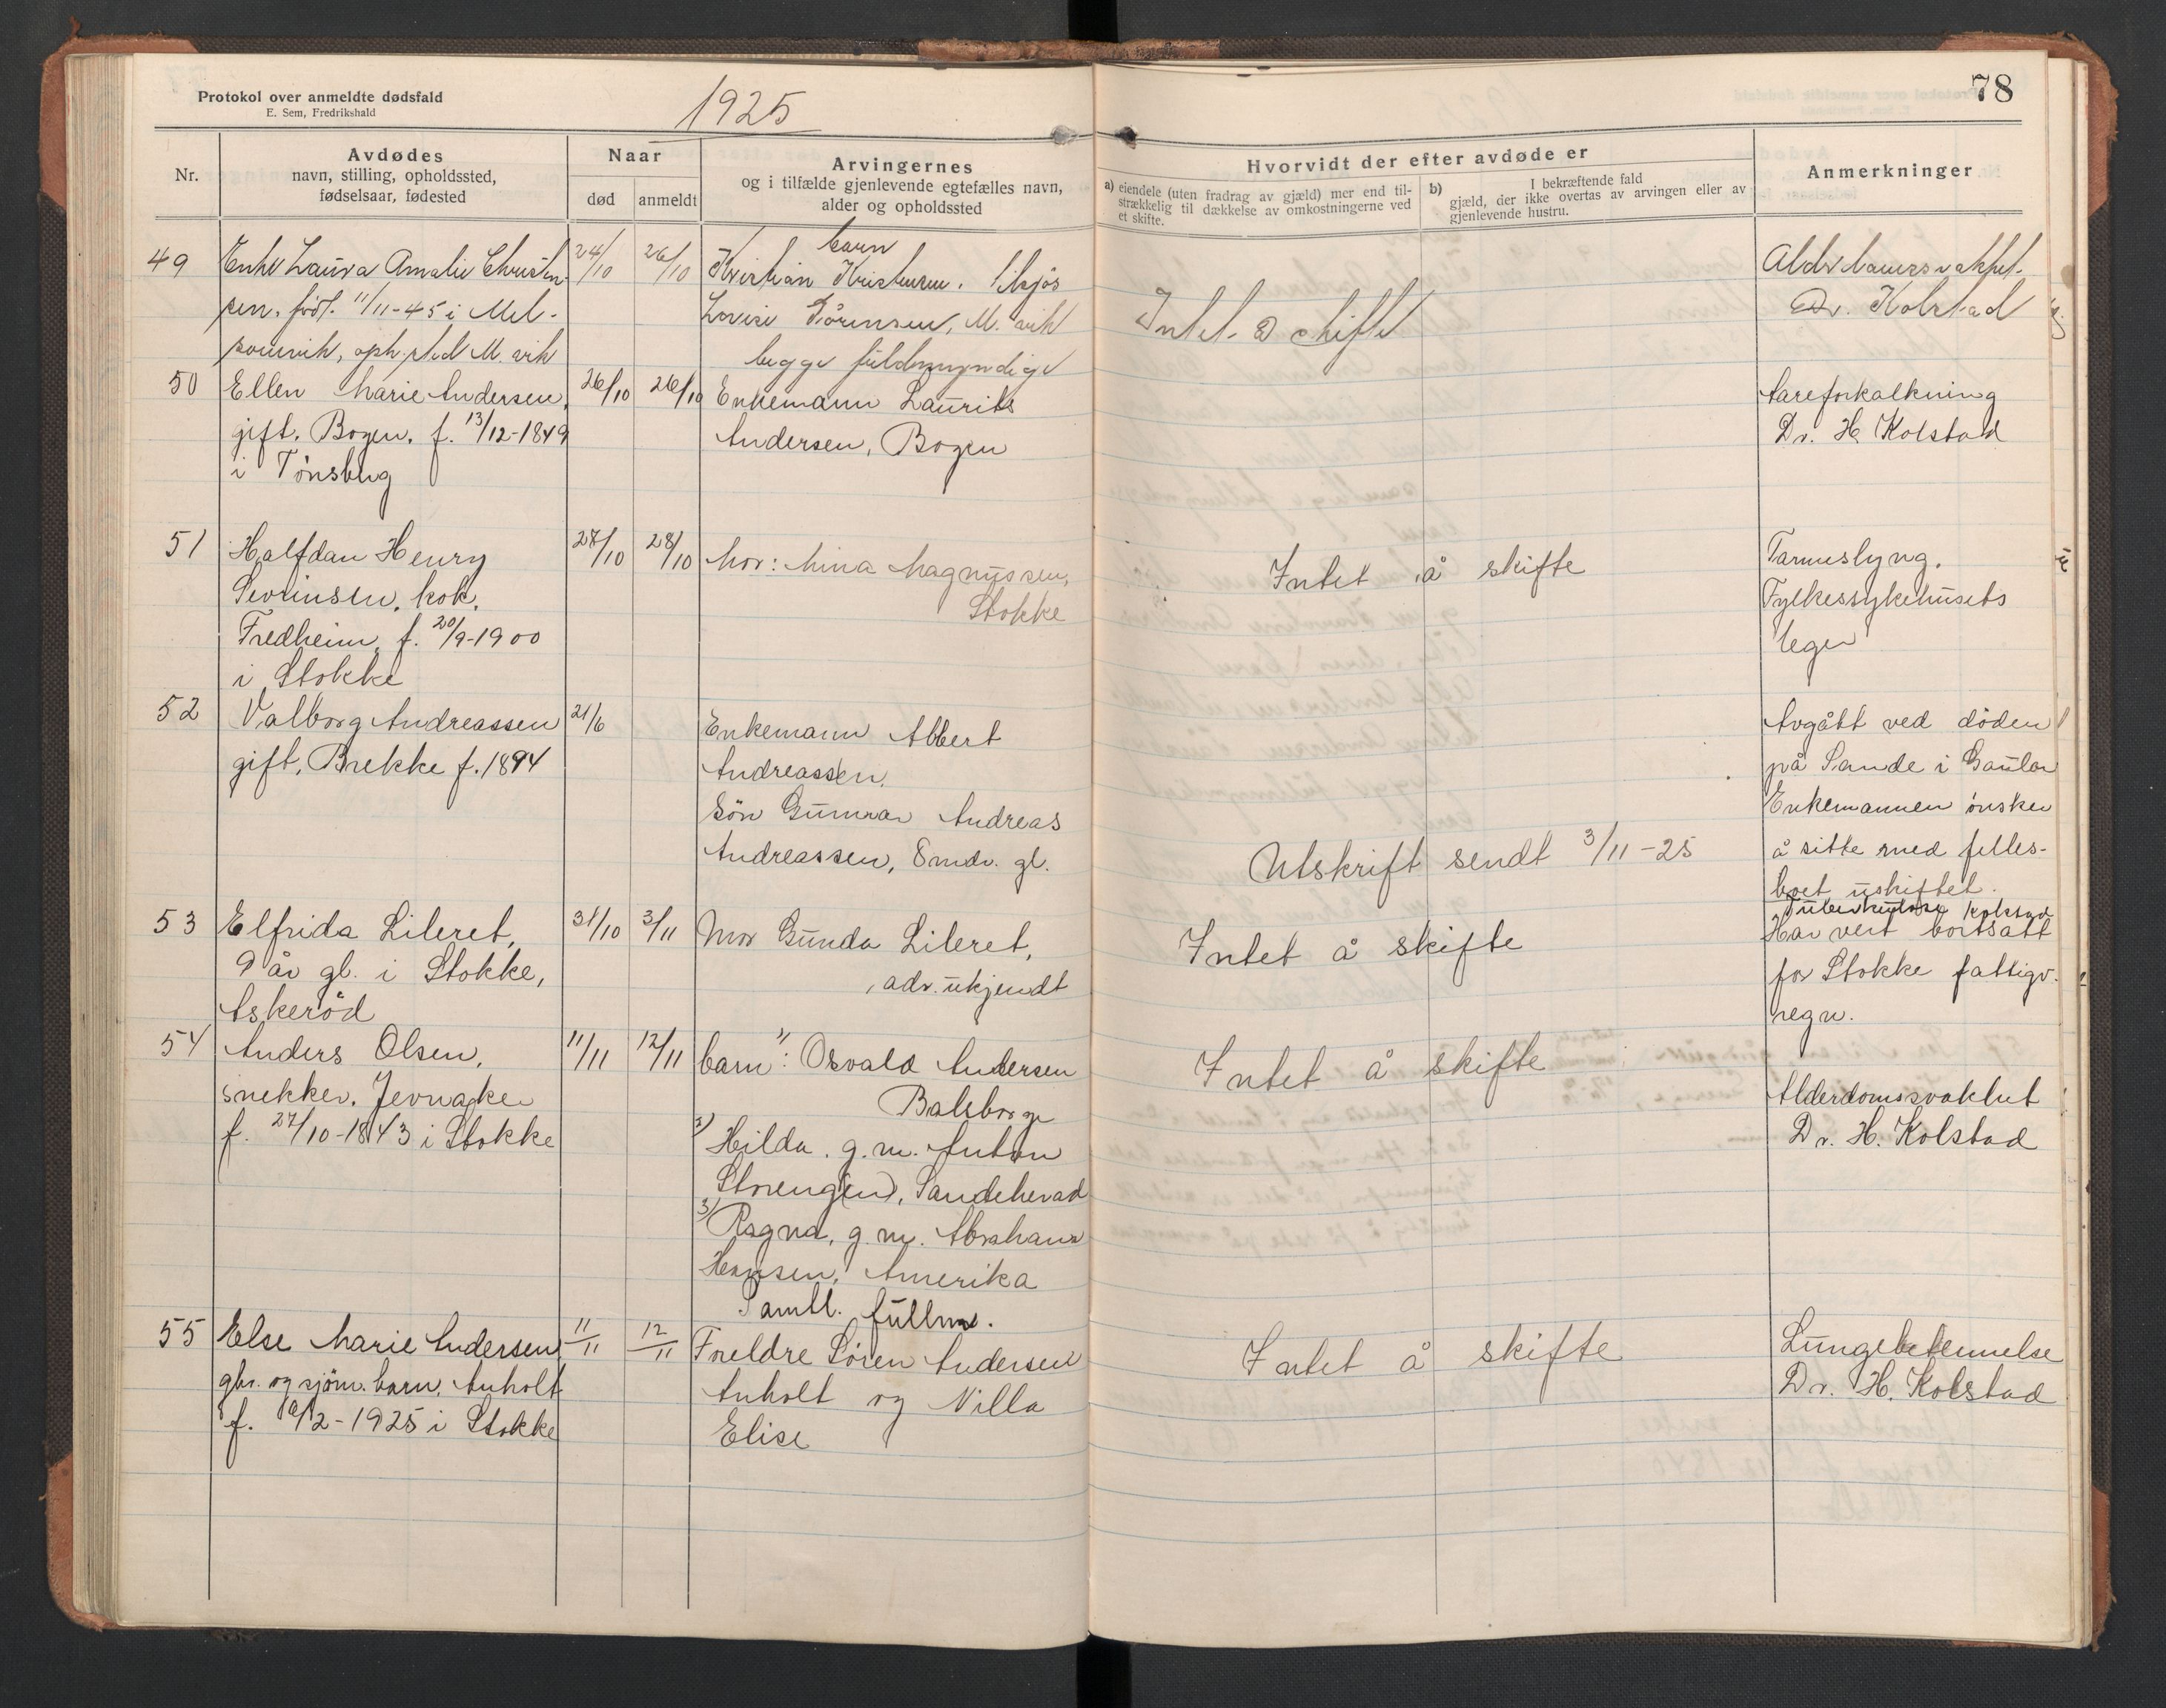 Protokol over anmeldte dødsfald
E. Sem, Fredrikshald
1925
78
Nr.
Avdødes
navn, stilling, opholdssted,
fødselsaar, fødested
Naar
død
anmeldt
Arvingernes
og i tilfælde gjenlevende egtefælles navn,
alder og opholdssted
Hvorvidt der efter avdøde er
a) eiendele (uten fradrag av gjæld) mer end til-
strækkelig til dækkelse av omkostningerne ved
et skifte.
b) I bekræftende fald
gjæld, der ikke overtas av arvingen eller av
gjenlevende hustru.
Anmerkninger
49
Enke Laura Amalie Christen-
sen, født. 11/11-45 i Mel-
somvik, oph.sted M. vik
24/10
26/10
barn
Kristian Kristensen, tilsjøs
Lovise Sörensen, M. vik
begge fuldmyndige
Intet å skifte
Alderdomssvakhet
Dr. Kolstad
50
Ellen Marie Andersen,
gift, Bogen, f. 13/12-1849
i Tönsberg
26/10
26/10
Enkemann Laurits
Andersen, Bogen
Åreforkalkning
Dr. H. Kolstad
51
Halfdan Henry
Sevrinsen, kok,
Fredheim, f. 20/9-1900
i Stokke
27/10
28/10
Mor: Mina Magnussen,
Stokke
Intet å skifte
Tarmslyng.
Fylkessykehusets
lege
52
Valborg Andreassen
gift, Brekke f. 1894
21/6
Enkemann Albert
Andreassen.
Sön Gunnar Andreas
Andreassen, 8 mdr. gl.
Utskrift sendt 3/11-25
Avgått ved döden
på Sande i Gaular
Enkemannen önsker
å sitte med felles-
boet uskiftet.
53
Elfrida Lileret,
9 år gl. i Stokke,
Askeröd
31/10
3/11
Mor Gunda Lileret,
adr. ukjendt
Intet å skifte
Tuberkulose Kolstad
Har vert bortsatt
for Stokke fattigv.
regn.
54
Anders Olsen,
snekker, Jevnaker
f. 27/10-1843 i Stokke
11/11
12/11
barn 1/: Osvald Andersen
Baleborge
2/ Hilda, g.m. Anton
Storeng(en), Sandeherad
3/ Ragna, g.m. Abraham
Hansen, Amerika
Samtl. fullm.
Intet å skifte
Alderdomssvakhet
Dr. H. Kolstad
55
Else Marie Andersen
gbr. og sjöm. barn, Anholt
f. /2-1925 i Stokke
11/11
12/11
Foreldre Sören Andersen
Anholt og Villa
Elise
Intet å skifte
Lungebetennelse
Dr. H. Kolstad